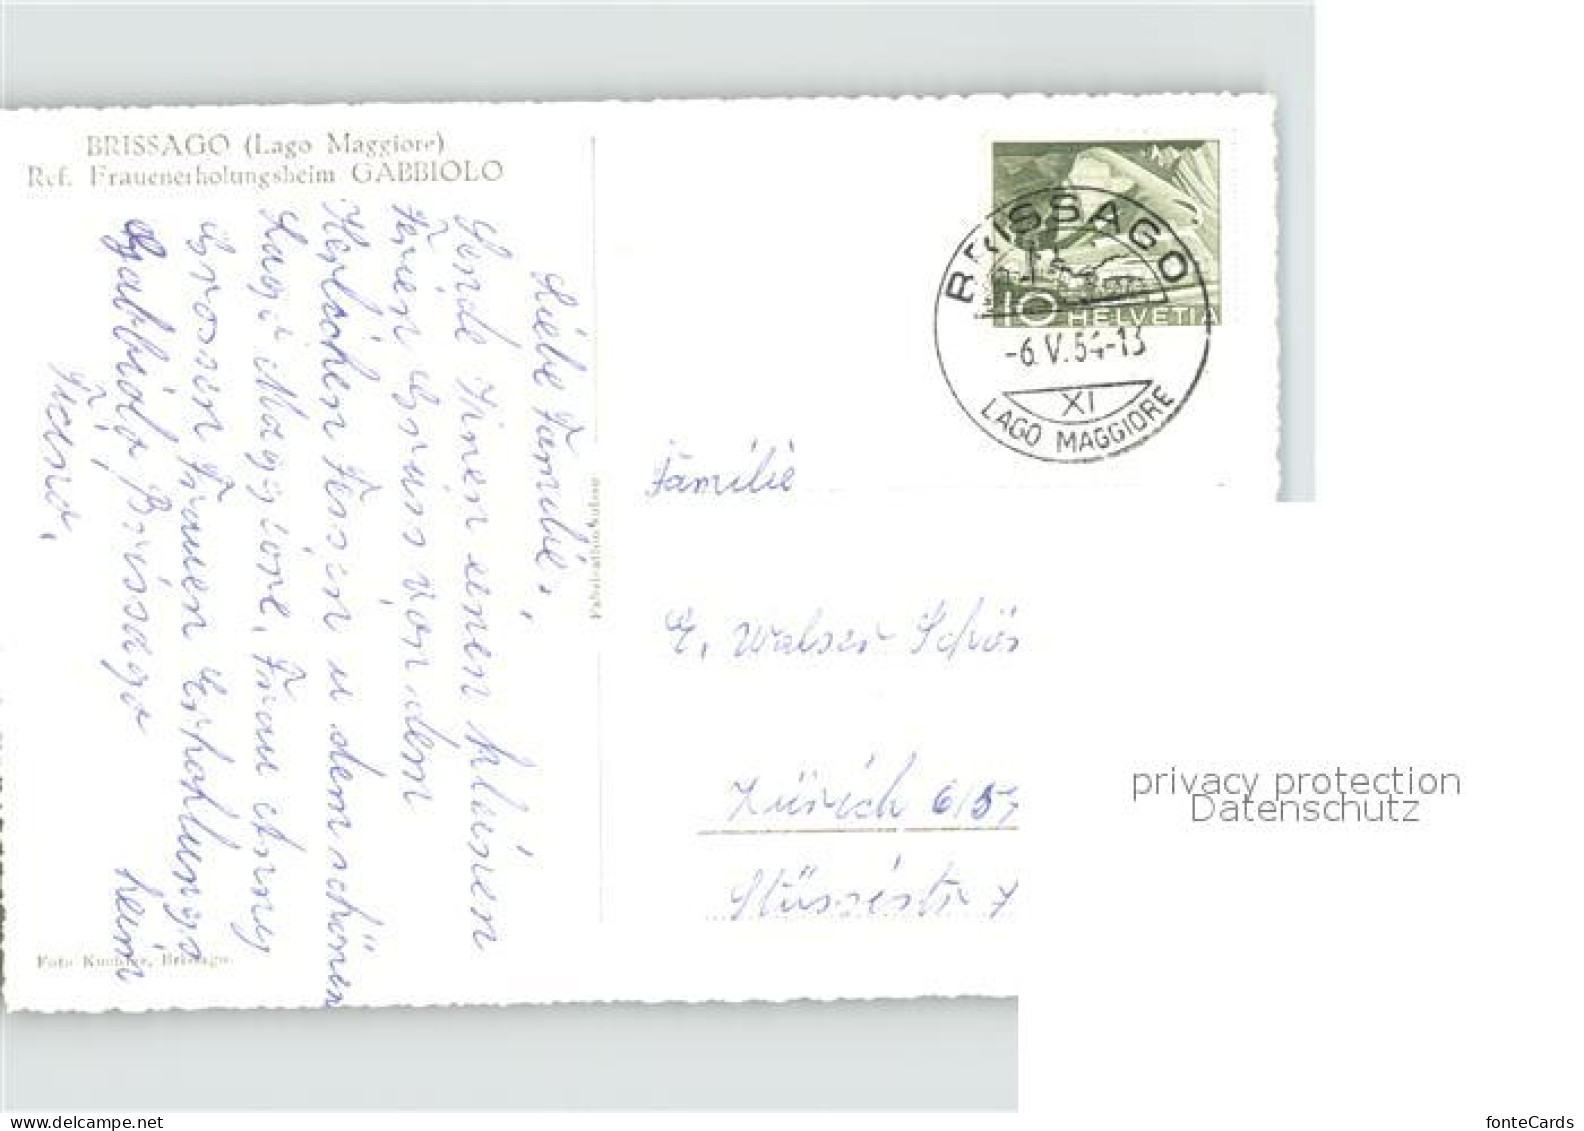 BRISSAGO (Lago Maggiore)
Ref. Frauenerholungsheim GABBIOLO
Liebe Familie,
Sende Ihnen einen kleinen
Feinen Gruss von dem
Herlichen Tessin u dem schönen
Lago Maggiore, Frau Anny
Grossen Frauen Erholungs
heim
Gabbiolo Brissago
Ticino,
Foto Brissago.
10 HELVETIA
BRISSAGO
-6.V.54-13
XI
LAGO MAGGIORE
Familie
E. Walser Schös
Zürich 6/57
Stüssistr
privacy protection
Datenschutz
www.delcampe.net
fonteCards